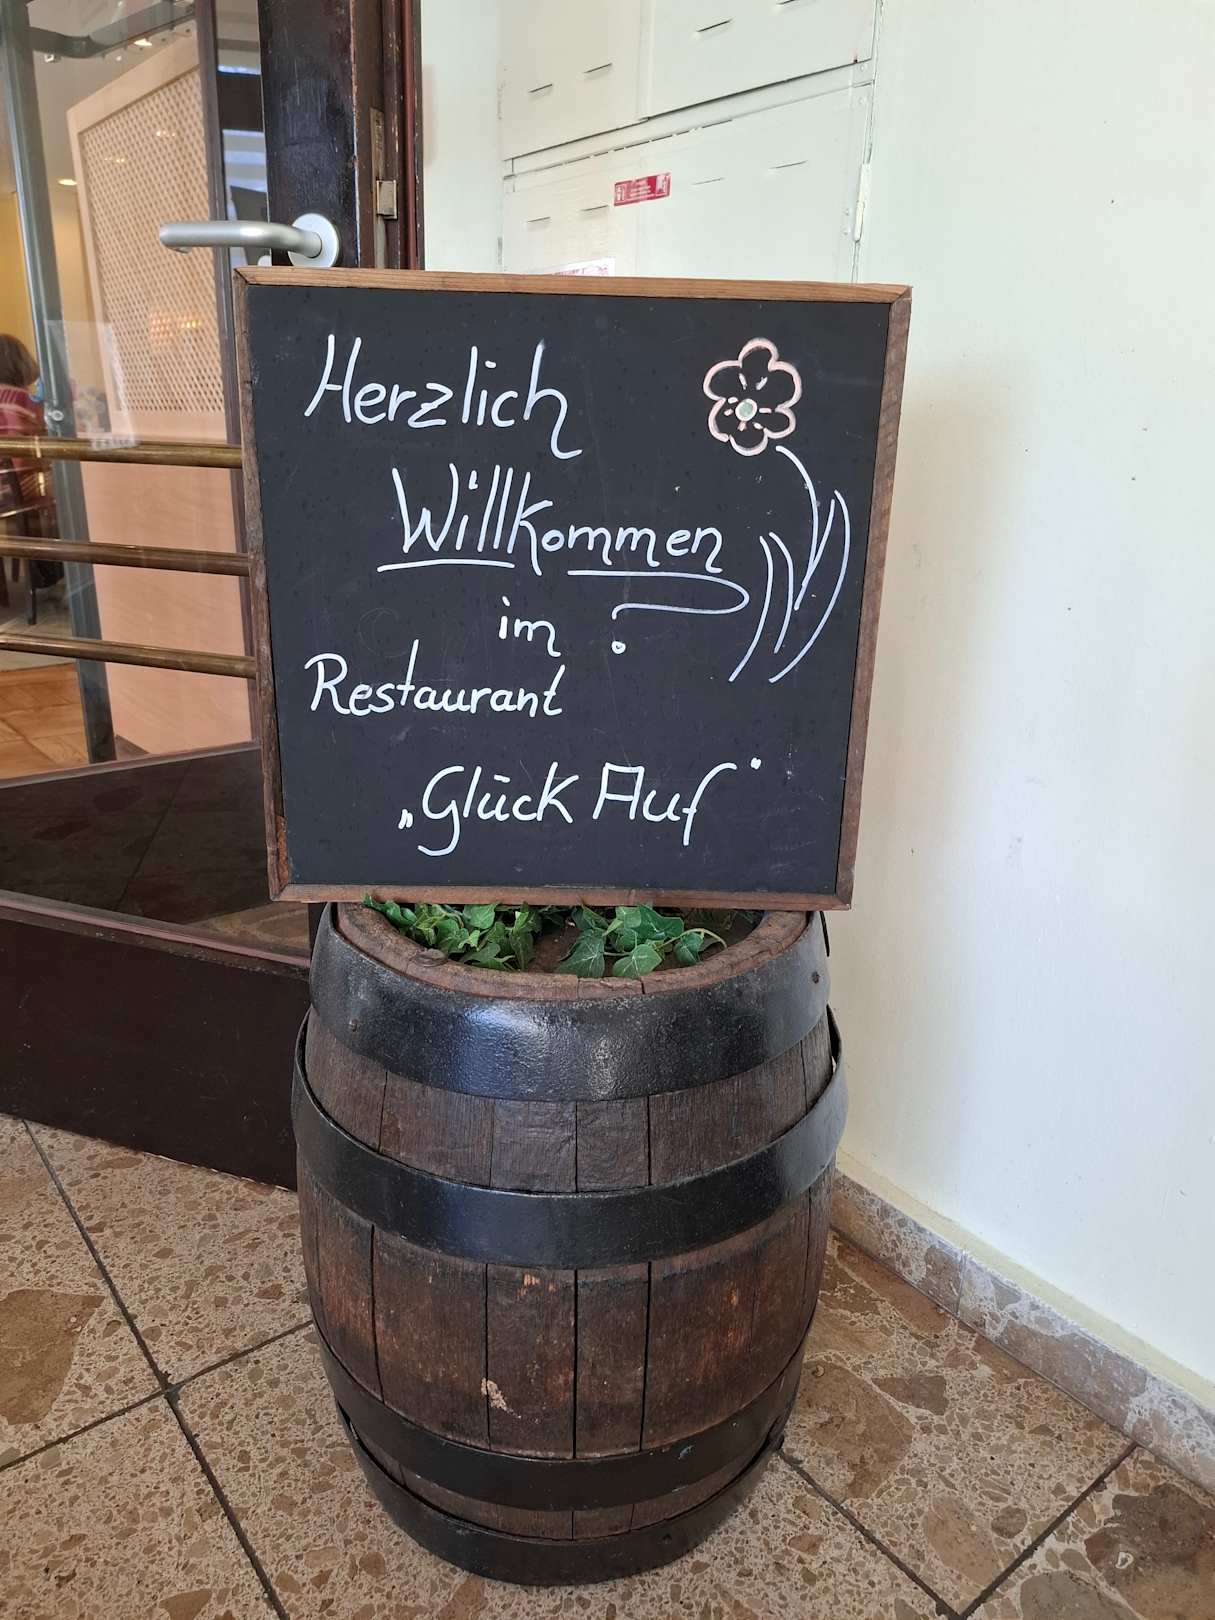 Herzlich
Willkommen
im
Restaurant
„Glück Auf"